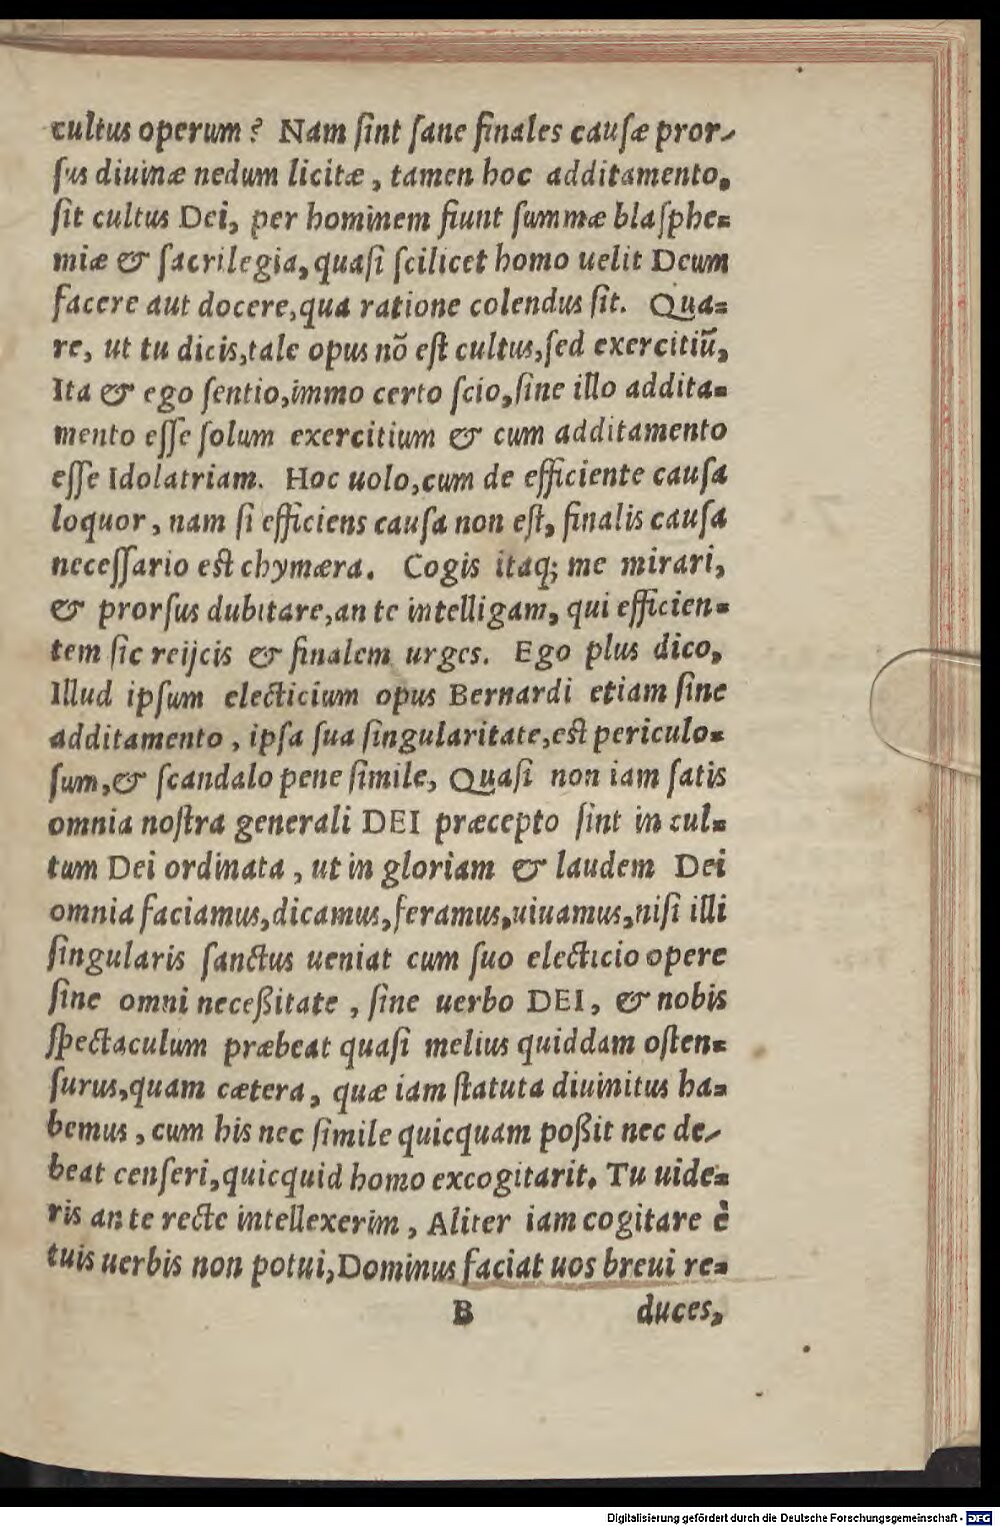 cultus operum? Nam ſint ſane finales cauſæ pror-
ſus diuinæ nedum licitæ, tamen hoc additamento,
ſit cultus Dei, per hominem fiunt ſummæ blaſphe=
miæ & ſacrilegia, quaſi ſcilicet homo uelit Deum
facere aut docere, qua ratione colendus ſit. Qua=
re, ut tu dicis, tale opus nõ eſt cultus, ſed exercitiũ,
Ita & ego ſentio, immo certo ſcio, ſine illo addita=
mento eſſe ſolum exercitium & cum additamento
eſſe Idolatriam. Hoc uolo, cum de efficiente cauſa
loquor, nam ſi efficiens cauſa non eſt, finalis cauſa
neceſſario eſt chymæra. Cogis itaq; me mirari,
& prorſus dubitare, an te intelligam, qui efficien=
tem ſic reijcis & finalem urges. Ego plus dico,
Illud ipſum electicium opus Bernardi etiam ſine
additamento, ipſa ſua ſingularitate, eſt periculo=
ſum, & ſcandalo pene ſimile, Quaſi non iam ſatis
omnia noſtra generali DEI præcepto ſint in cul=
tum Dei ordinata, ut in gloriam & laudem Dei
omnia faciamus, dicamus, feramus, uiuamus, niſi illi
ſingularis ſanctus ueniat cum ſuo electicio opere
ſine omni neceßitate, ſine uerbo DEI, & nobis
ſpectaculum præbeat quaſi melius quiddam oſten=
ſurus, quam cætera, quæ iam ſtatuta diuinitus ha=
bemus, cum his nec ſimile quicquam poßit nec de-
beat cenſeri, quicquid homo excogitarit. Tu uide=
ris an te recte intellexerim, Aliter iam cogitare è
tuis uerbis non potui, Dominus faciat uos breui re=
B duces,
Digitalisierung gefördert durch die Deutsche Forschungsgemeinschaft - DFG